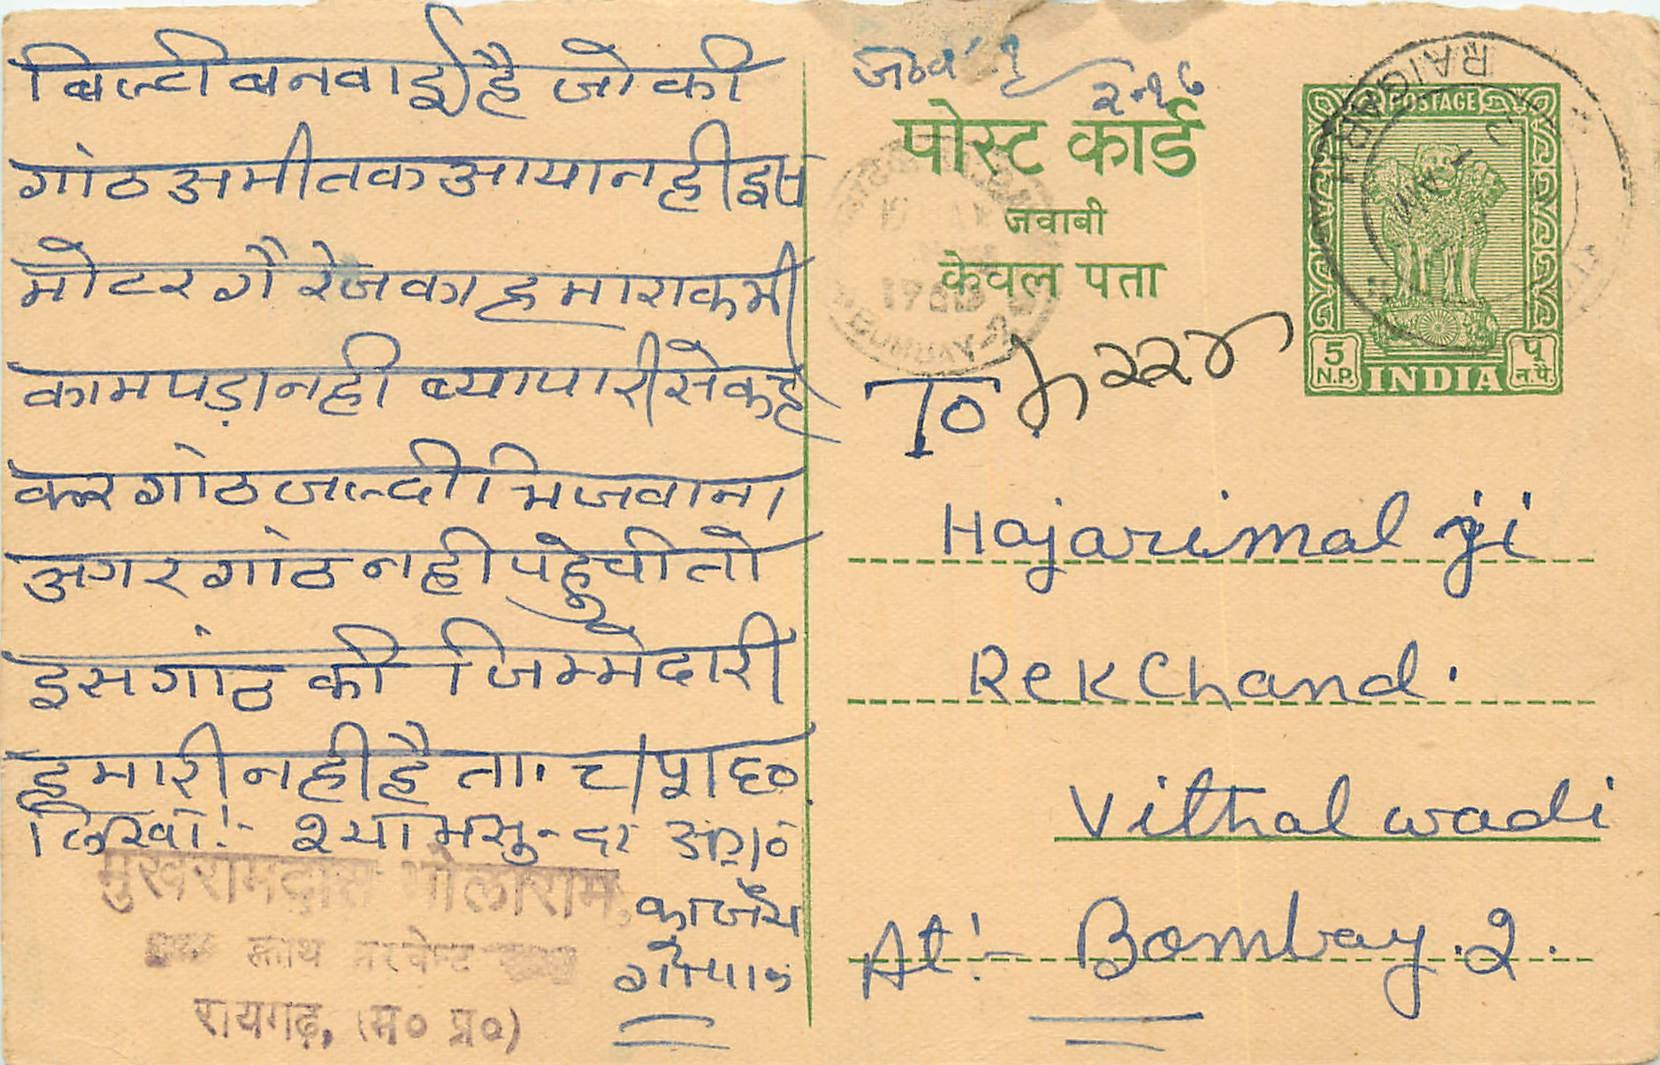 बिल्टी बनवाई है जो की
गांठ अभी तक आया नही इस
मोटर गैरेज का हमारा कभी
काम पड़ा नही व्यापारी से कह
कर गांठ जल्दी भिजवाना
अगर गांठ नही पहुंची तो
इस गांठ की जिम्मेदारी
हमारी नही है ता. ८/५/६०
लिखी:- श्यामसुन्दर
का जय
गोपाल
मुखरामदास भोलाराम,
क्लाथ मरचेण्ट
रायगढ़, (म० प्र०)
पोस्ट कार्ड
जवाबी
केवल पता
POSTAGE
5 N.P.
INDIA
न.पै.
RAIGARH
BOMBAY-2
To
Hajarimal ji
Rekchand.
Vithal wadi
At:- Bombay.2.